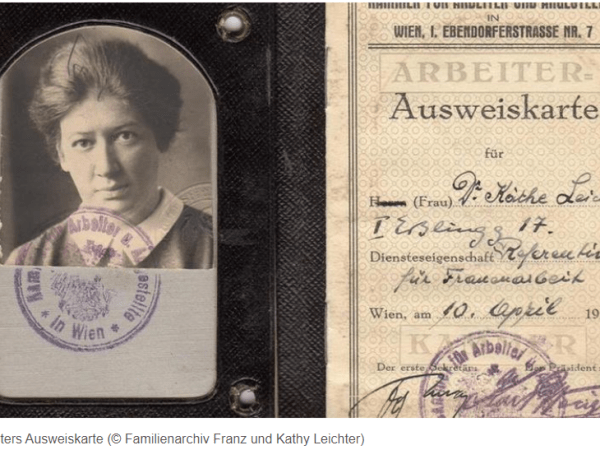 KAMMER FÜR ARBEITER UND ANGESTELL
IN
WIEN, I. EBENDORFERSTRASSE NR. 7
ARBEITER=
Ausweiskarte
für
Herrn (Frau) Dr. Käthe Leic
I Eßlingg 17.
Diensteseigenschaft Referentin
für Frauenarbeit
Wien, am 10. April 19
KAMMER
Der erste Sekretär: Der Präsident
für Arbeiter u.
Kam
Arbeiter u. A
estellte
* in Wien *
ters Ausweiskarte (© Familienarchiv Franz und Kathy Leichter)